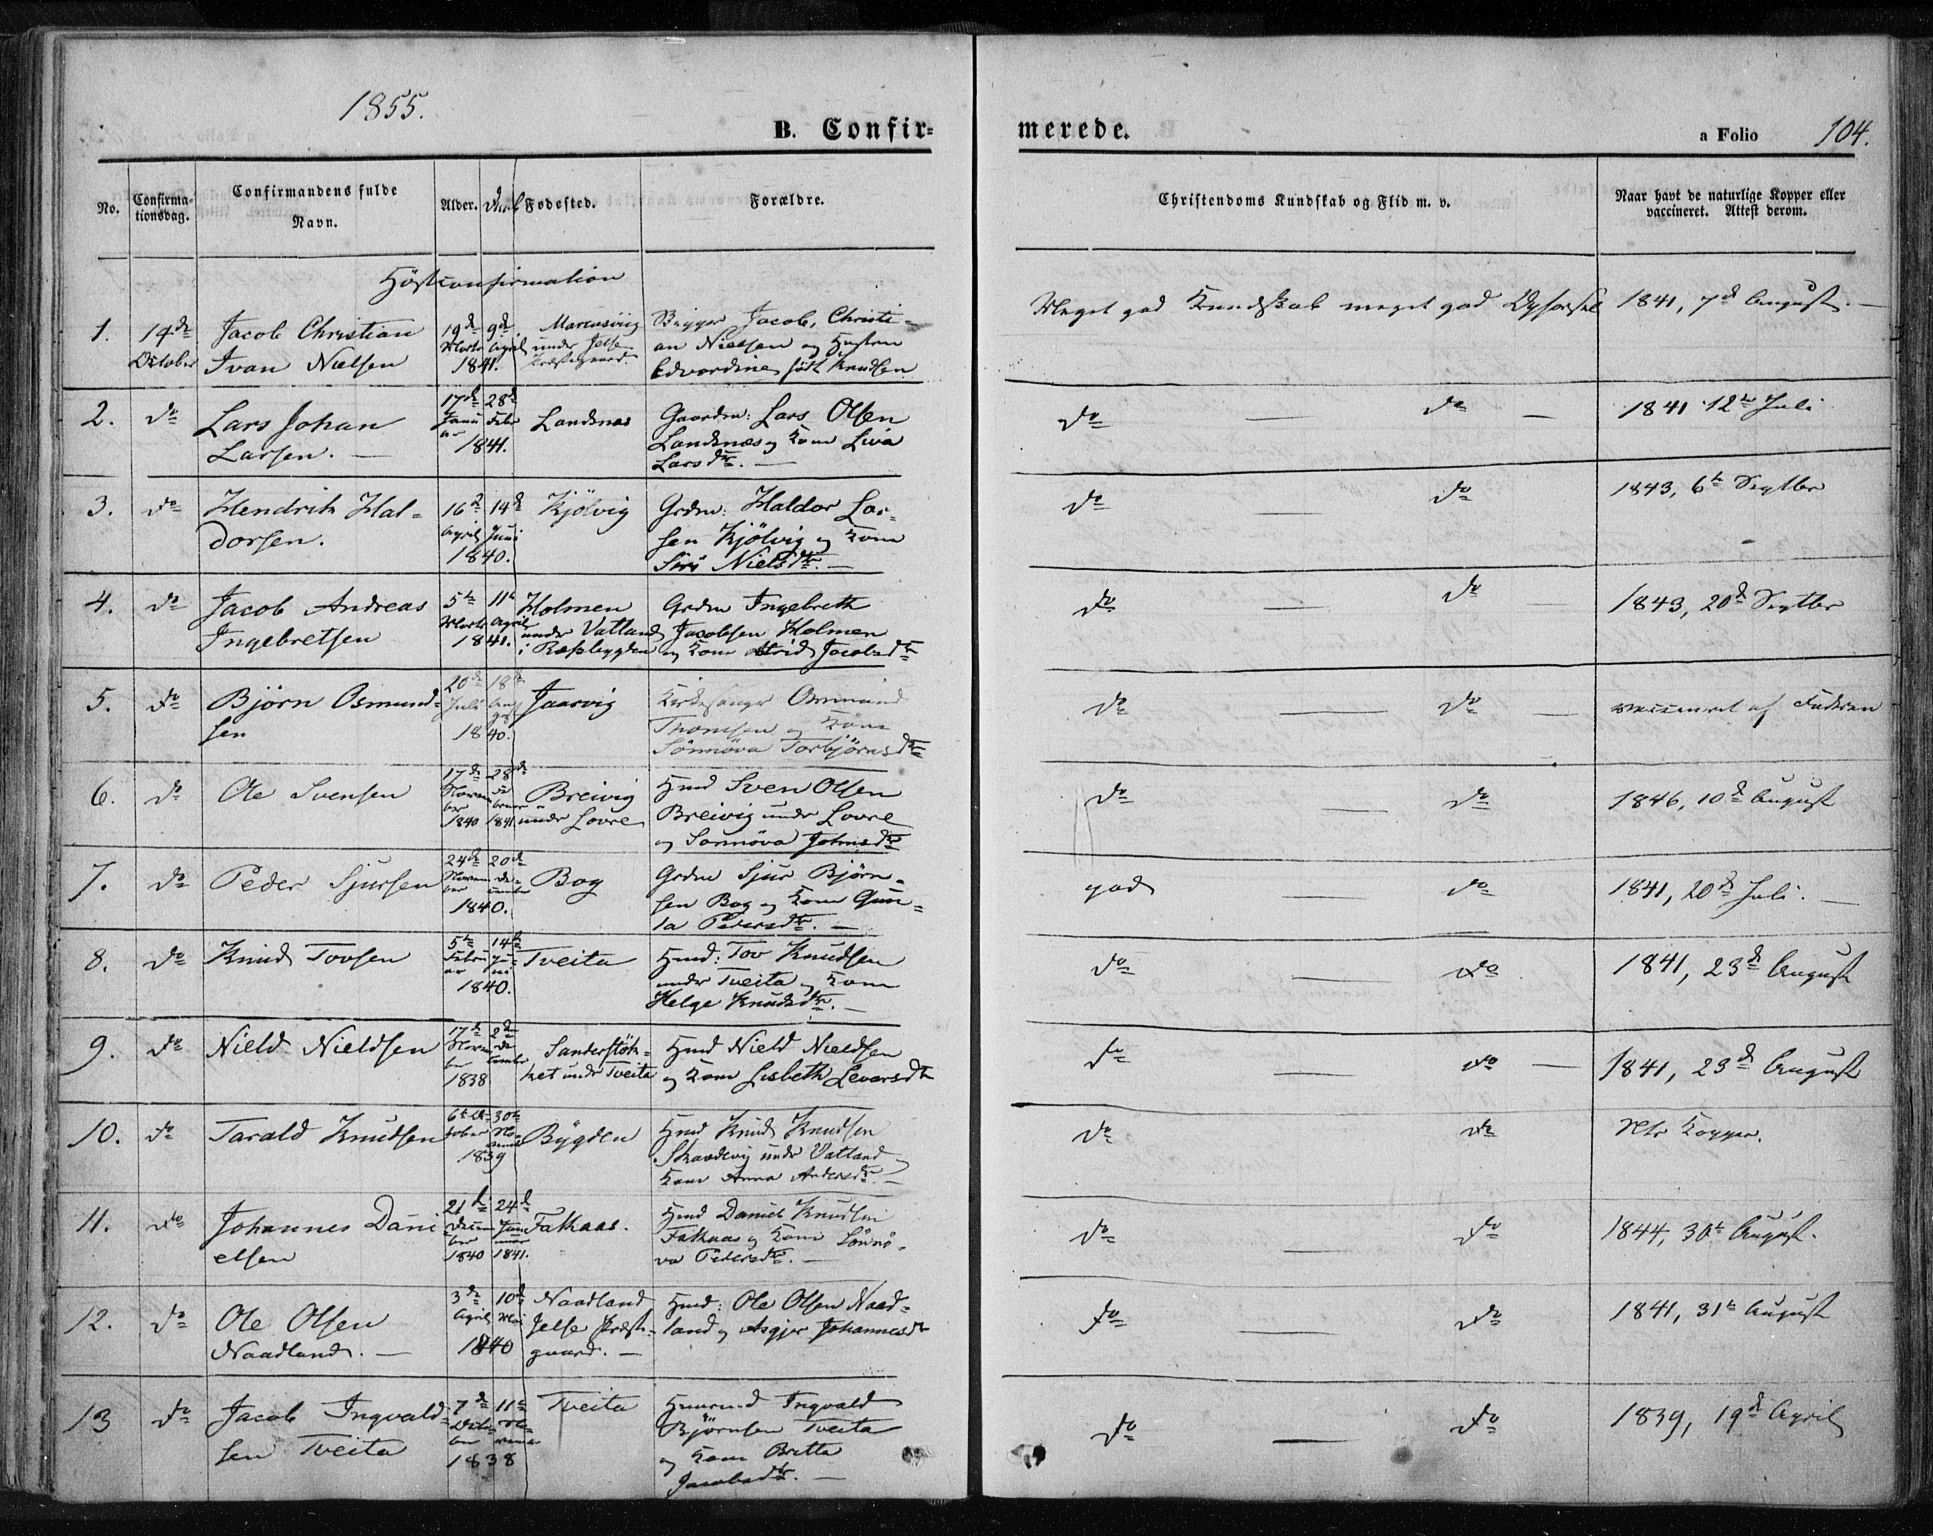 1855.
B. Confir-
merede.
a Folio 104.
No.
Confirma-
tionsdag.
Confirmandens fulde
Navn.
Alder.
Fødested.
Forældre.
Christendoms Kundskab og Flid m. v.
Naar havt de naturlige Kopper eller
vaccineret. Attest derom.
Høstconfirmation
1. 14de October
Jacob Christian
Ivan Nielsen
19de Marts 9de April 1841.
under Jelse
Præstegaard.
Jacob, Christi-
an Nielsen og Husten
Edvardine født Knudsen
Meget god Kundskab meget god Opførsel
1841, 7de August.
2. do
Lars Johan
Larsen.
17de Januar 28de Febr 1841.
Landsnæs
Gaardm: Lars Olsen
Landsnæs og Kone Liva
Larsdtr.
do do
1841 12te Juli
3. do
Hendrik Hal-
dorsen.
16de April 14de Juni 1840.
Kjölvig
Grdm: Haldor Lar-
sen Kjölvig og Kone
Siri Nielsdtr.
do do
1843, 6te Septbr
4. do
Jacob Andreas
Ingebretsen
5te Marts 11te April 1841.
Holmen
under Vatland
i Ræsbygden
Grdm Ingebreth
Jacobsen Holmen
og Kone Astrid Jacobsdtr
do do
1843, 20de Septbr
5. do
Björn Osmund-
sen
20de Juli 18de Aug 1840.
Jaarvig
Kirkesanger Osmund
Thomsen og Kone
Sönnöva Torbjörnsdtr
do do
vaccineret af Faderen
6. do
Ole Svensen
17de November 1840 28de 1841.
Breivig
under Lovre
Hmd Sven Olsen
Breivig under Lovre
og Sonnöva Johnsdtr
do do
1846, 10de August
7. do
Peder Sjursen
24de November 20de December 1840.
Bog
Grdm Sjur Björn-
sen Bog og Kone Gun-
la Pedersdtr.
god do
1841, 20de Juli.
8. do
Knud Tovsen
5te Februar 14de Juni 1840.
Tveita
Hmd: Tov Knudsen
under Tveita og Kone
Helge Knudsdtr.
do do
1841, 23de August
9. do
Nield Nieldsen
17de November 2de December 1838
Sanderstök-
ket under Tveita
Hmd Nield Nieldsen
og Kone Lisbeth Leversdtr
do do
1841, 23de August
10. do
Tarald Knudsen
6te October 30te November 1839
Bygden
Hmd Knud Knudsen
under Vatland og
Kone Anna Andersdtr.
do do
Kopper.
11. do
Johannes Dani
elsen
21de December 1840 24de Januar 1841.
Falkaas.
Hmd Daniel Knudsen
Falkaas og Kone Sönnö-
va Pedersdtr.
do do
1844, 30te August.
12. do
Ole Olsen
Naadland.
3de April 10de Mai 1840
Naadland
Jelse Præste-
gaard.
Hmd: Ole Olsen Naad-
land og Asgjer Johannesdtr
do do
1841, 31te August
13 do
Jacob Ingvald-
sen Tveita
7de October 11te November 1838
Tveita
Ingvald
Björnsen Tveita
og Kone Britta
Jacobsdtr.
do do
1839, 19de April